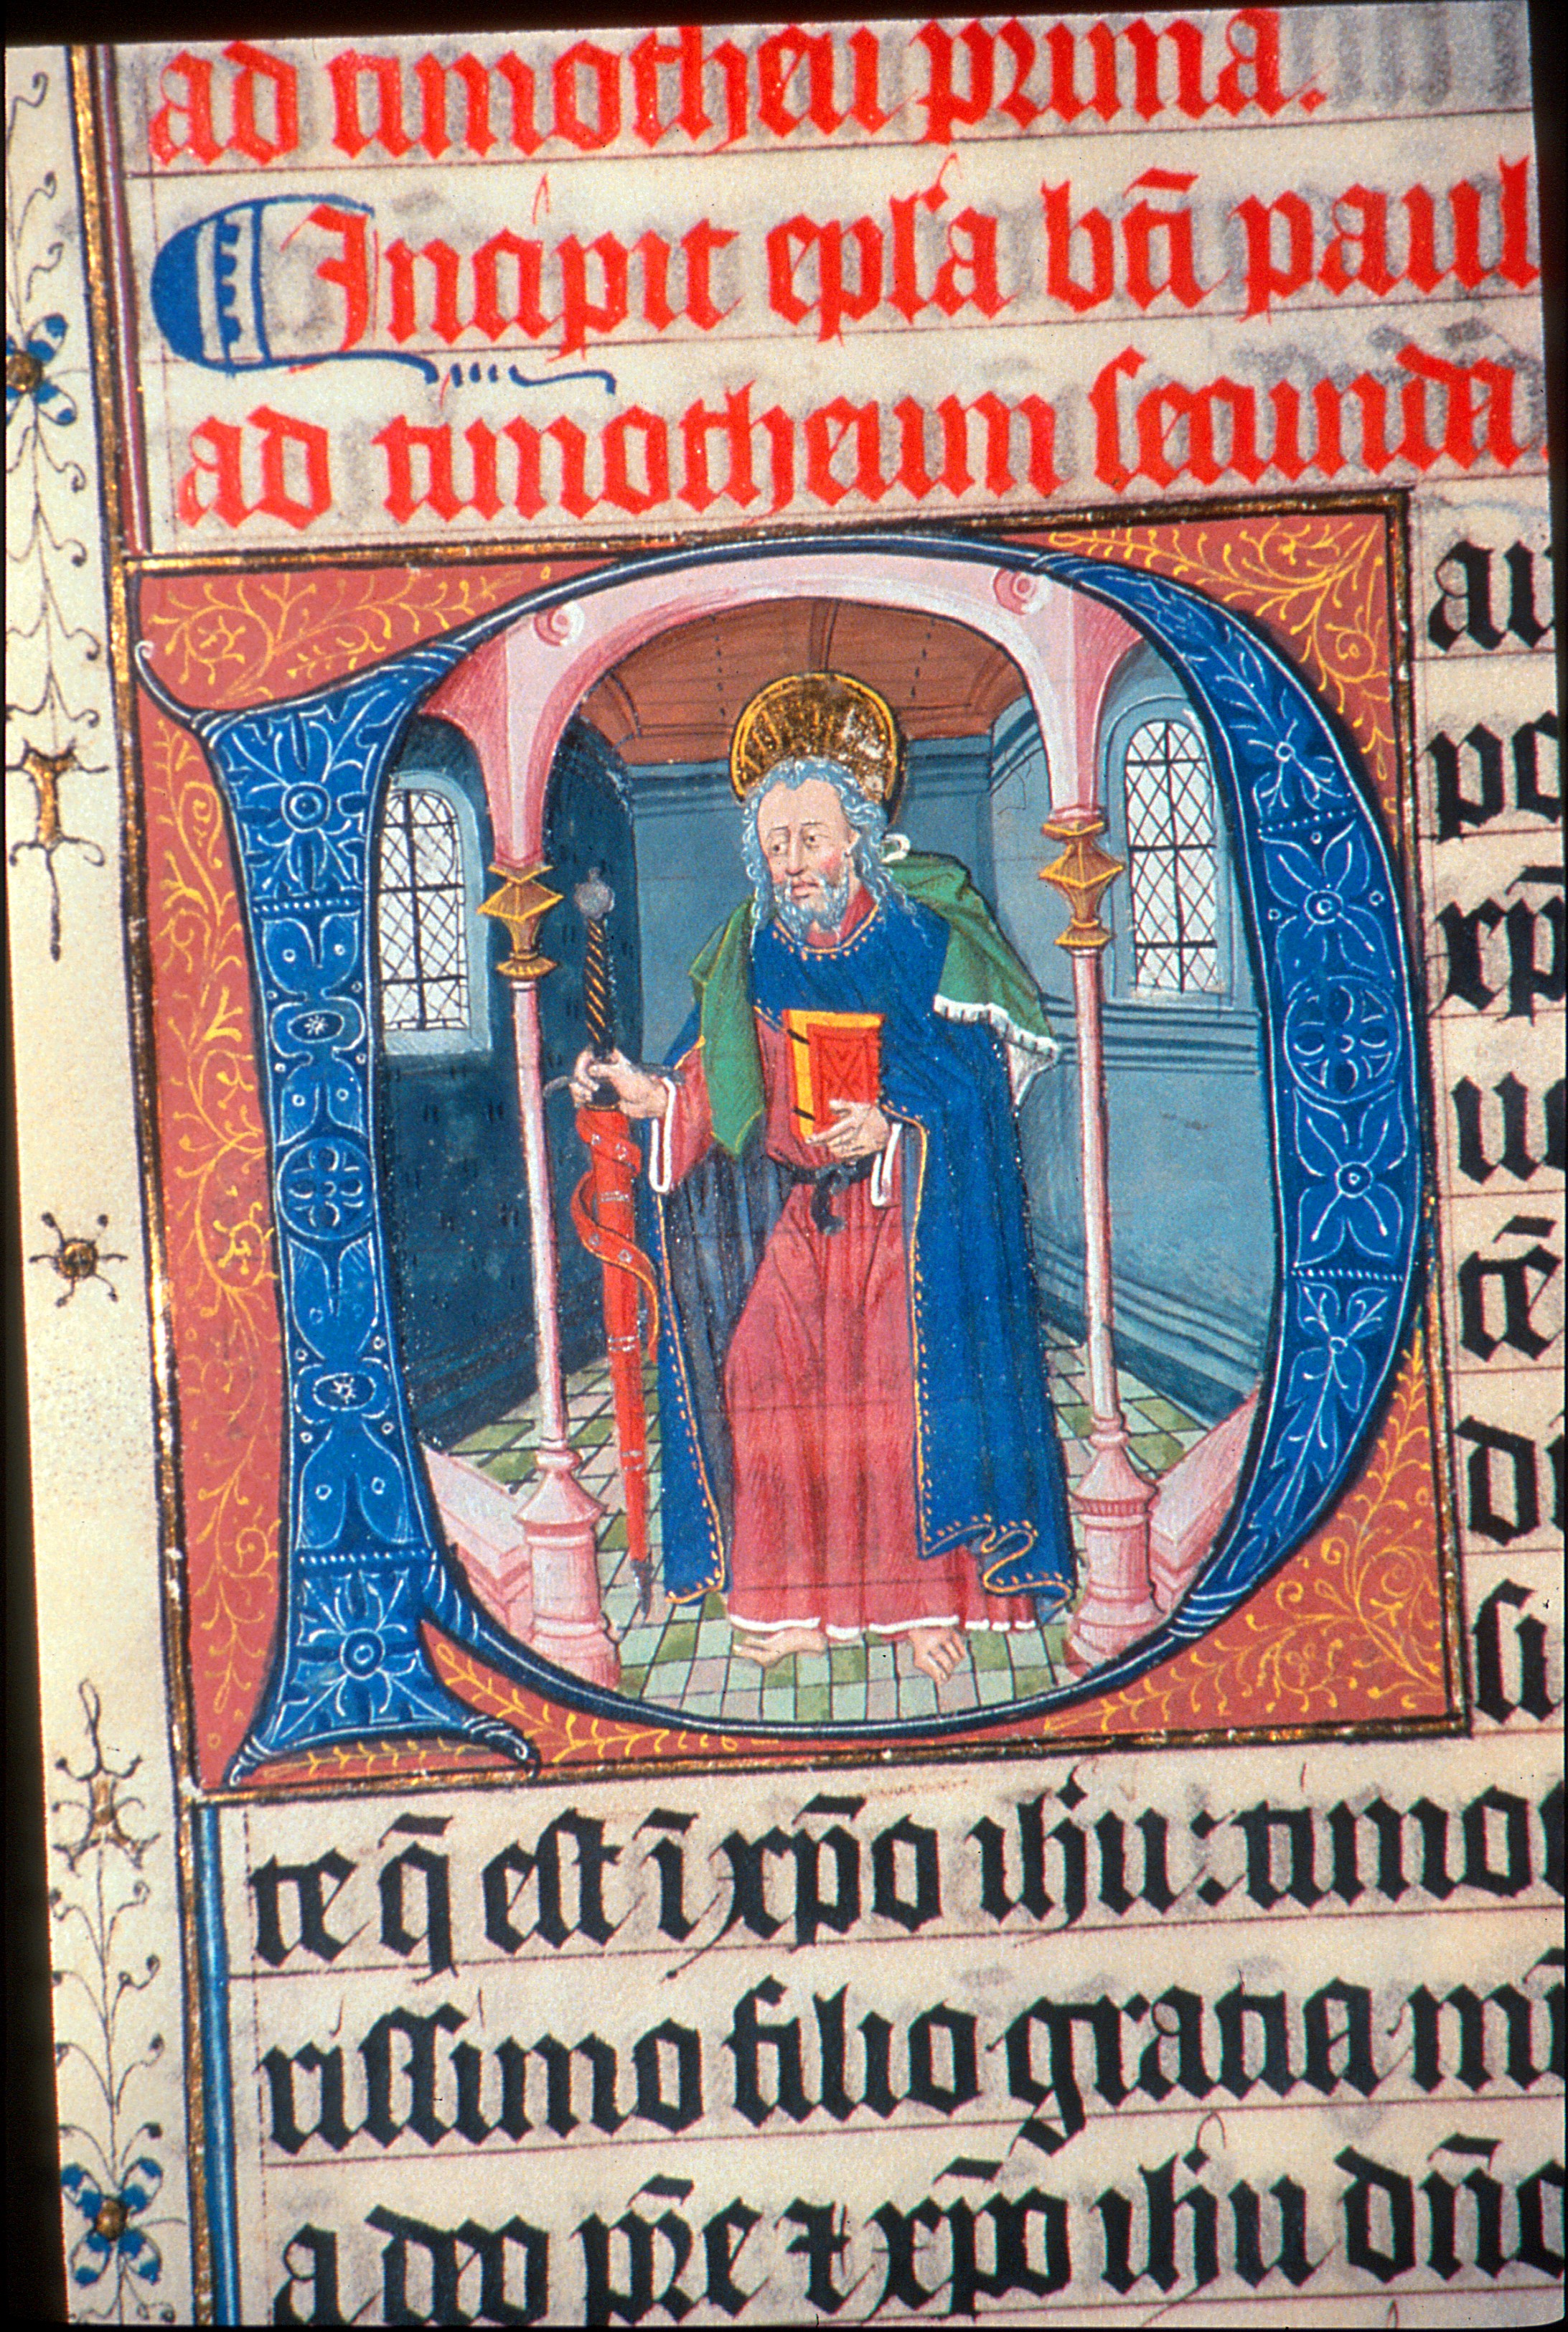 ad timotheū prima.
Incipit ep̄la bt̄i paul
ad timotheum secunda.
P au
po
xp̄i
uo
tē
di
si
te q̄ est ī xp̄o ihu: timo
rissimo filio gratia
a deo pr̄e ⁊ xp̄o ihu dn̄o